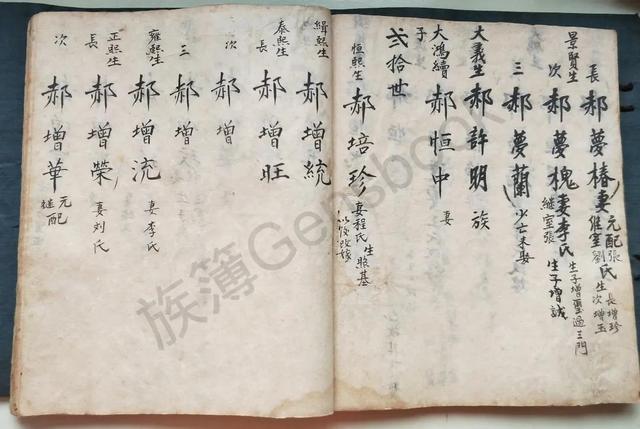 長 郝夢椿妻 元配張 繼室劉 氏 生 長增珍 次增玉
景賢生
次 郝夢槐妻李氏 生子增璽過三門
繼室張 生子增誠
三 郝夢蘭 少亡未娶
大義生 郝許明 族
大鴻續子 郝恒中 妻
弍拾世
恒熙生 郝培珍 妻程氏生照基
以後改嫁
緝熙生 郝增統
泰熙生
長 郝增旺
次 郝增
三 郝增
雍熙生 郝增流 妻李氏
正熙生
長 郝增榮 妻刘氏
次 郝增華 元配
繼
族簿Gensbook